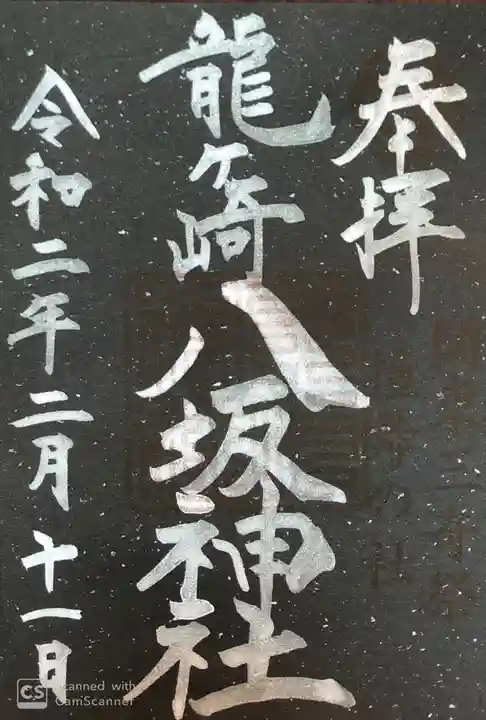 奉拝
龍ヶ崎八坂神社
令和二年二月十一日
CS Scanned with CamScanner